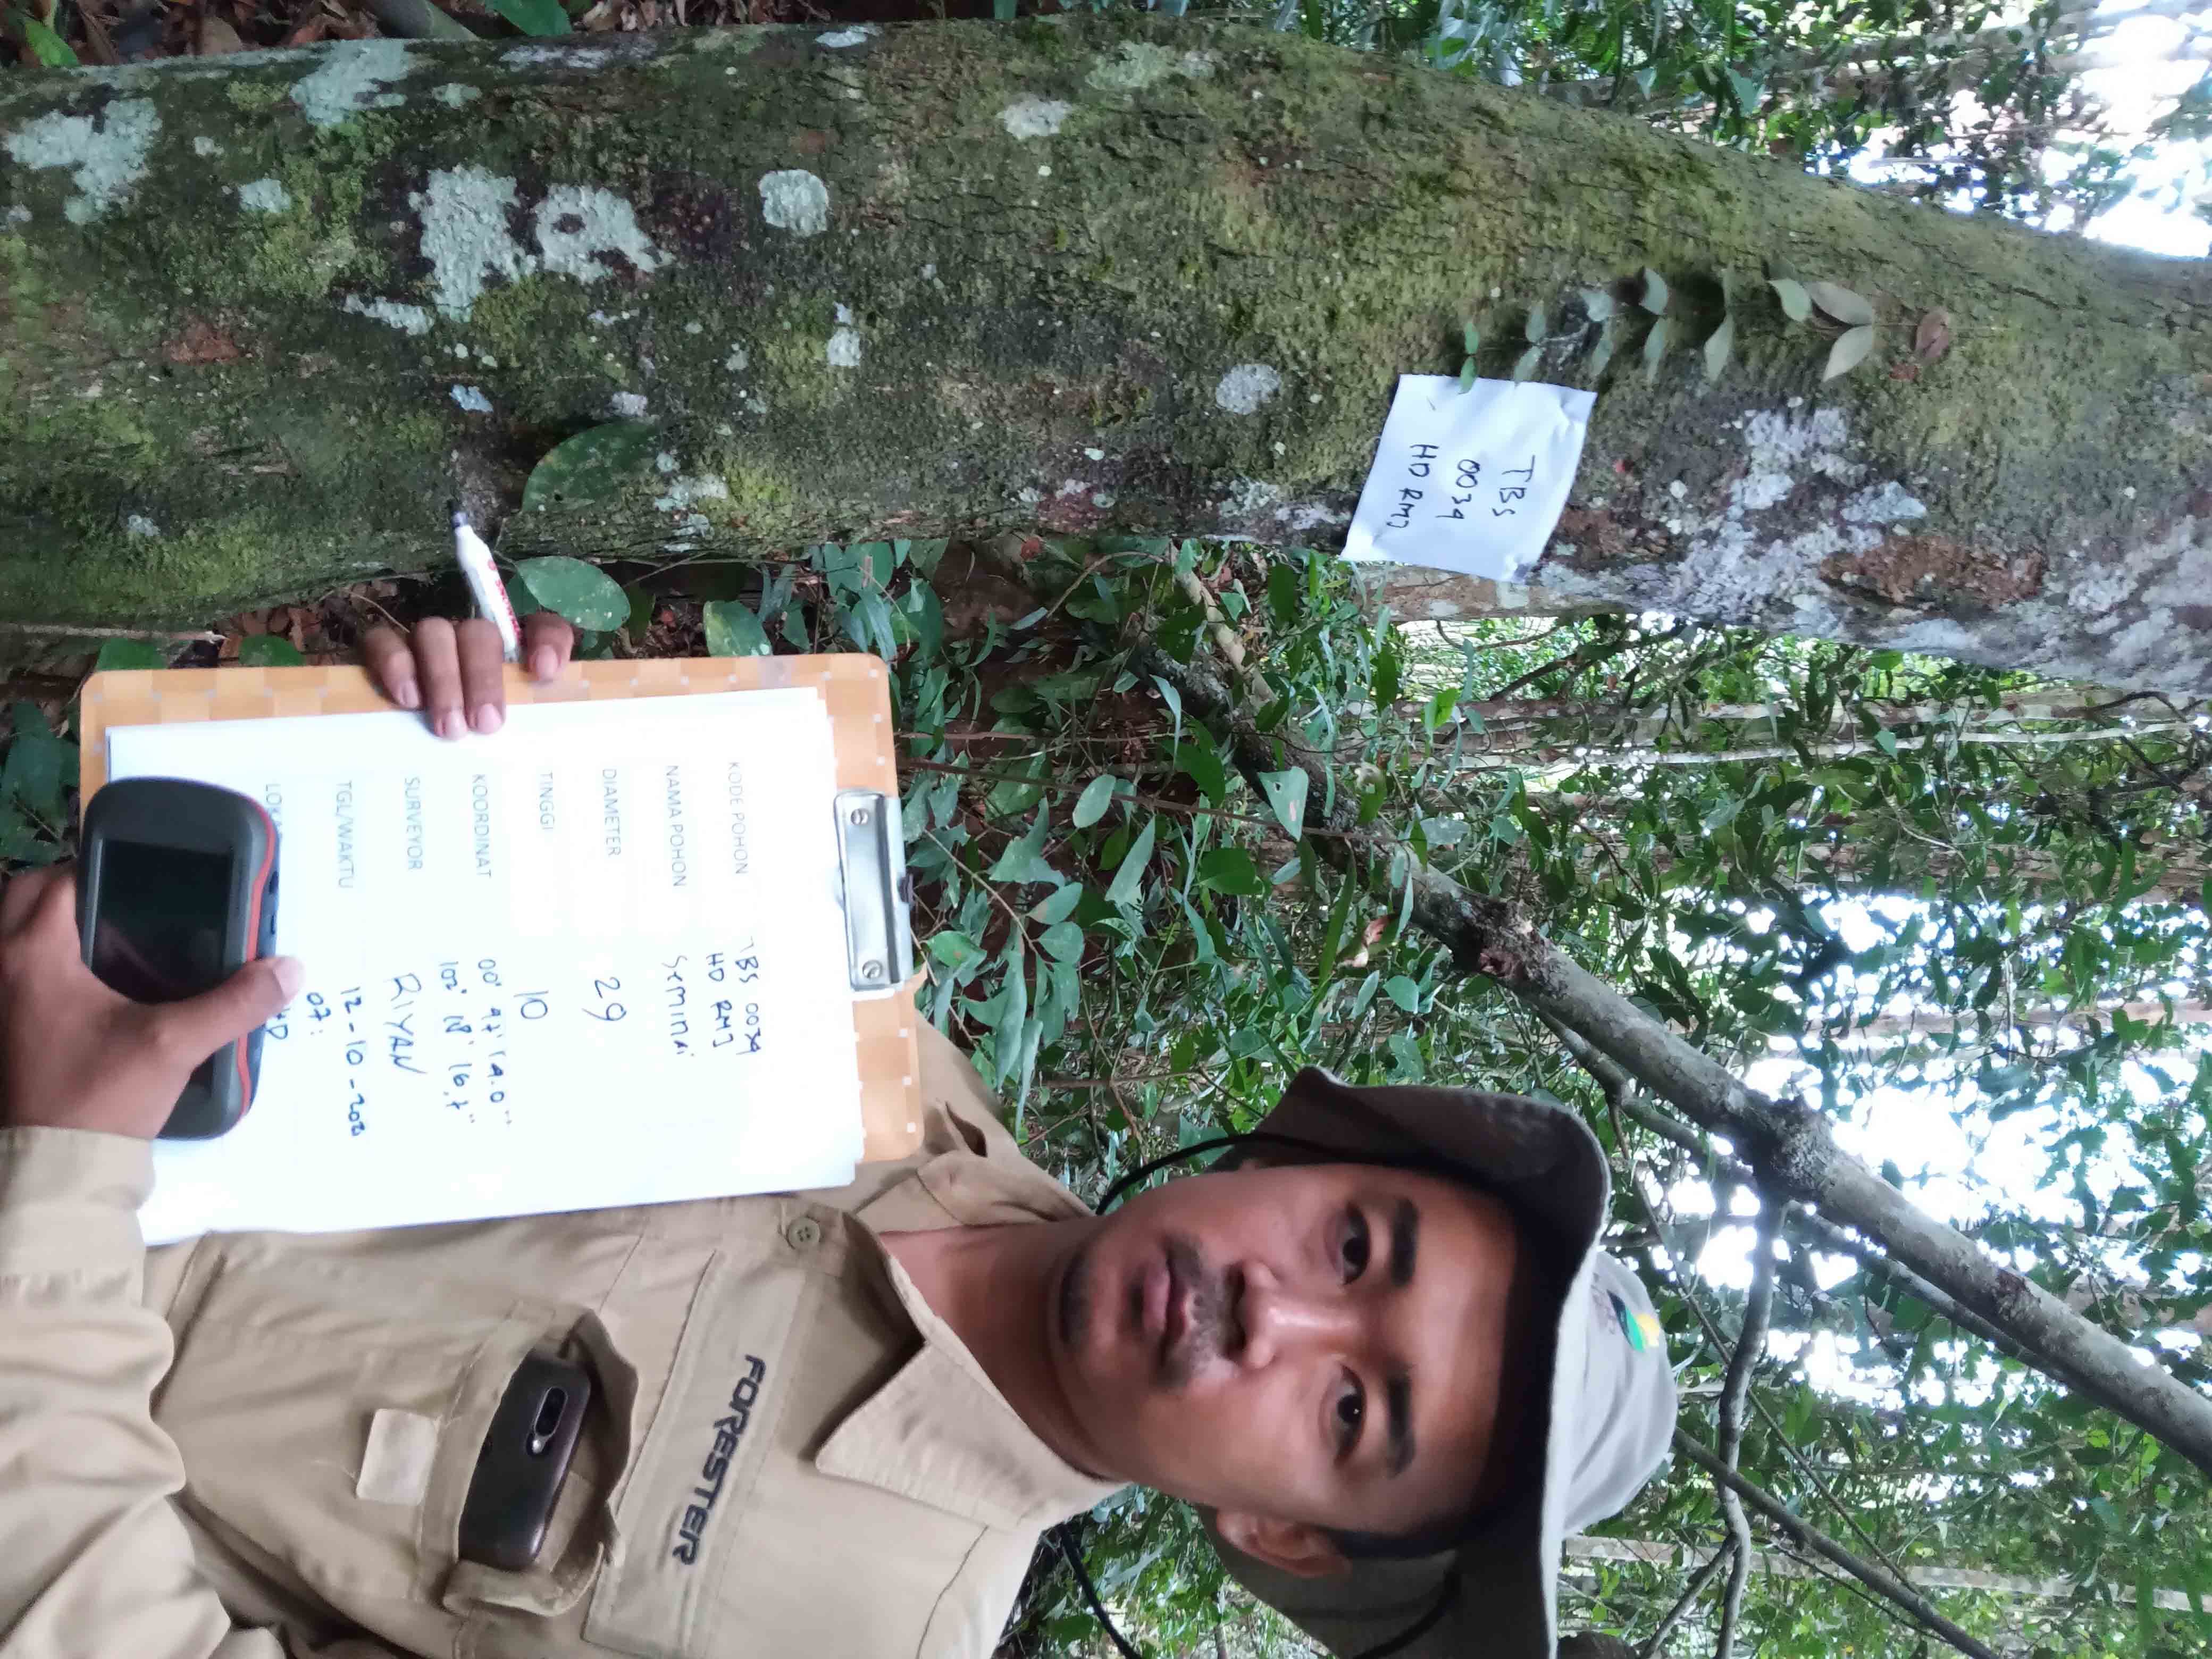 TBS
0039
HD RMJ
FORESTER
KODE POHON TBS 0039
HD RMJ
NAMA POHON Seminai
DIAMETER 29
TINGGI 10
KOORDINAT 00° 47' 14.0"
102° 18' 16,7"
SURVEYOR RIYAN
TGL/WAKTU 12-10-202
07: